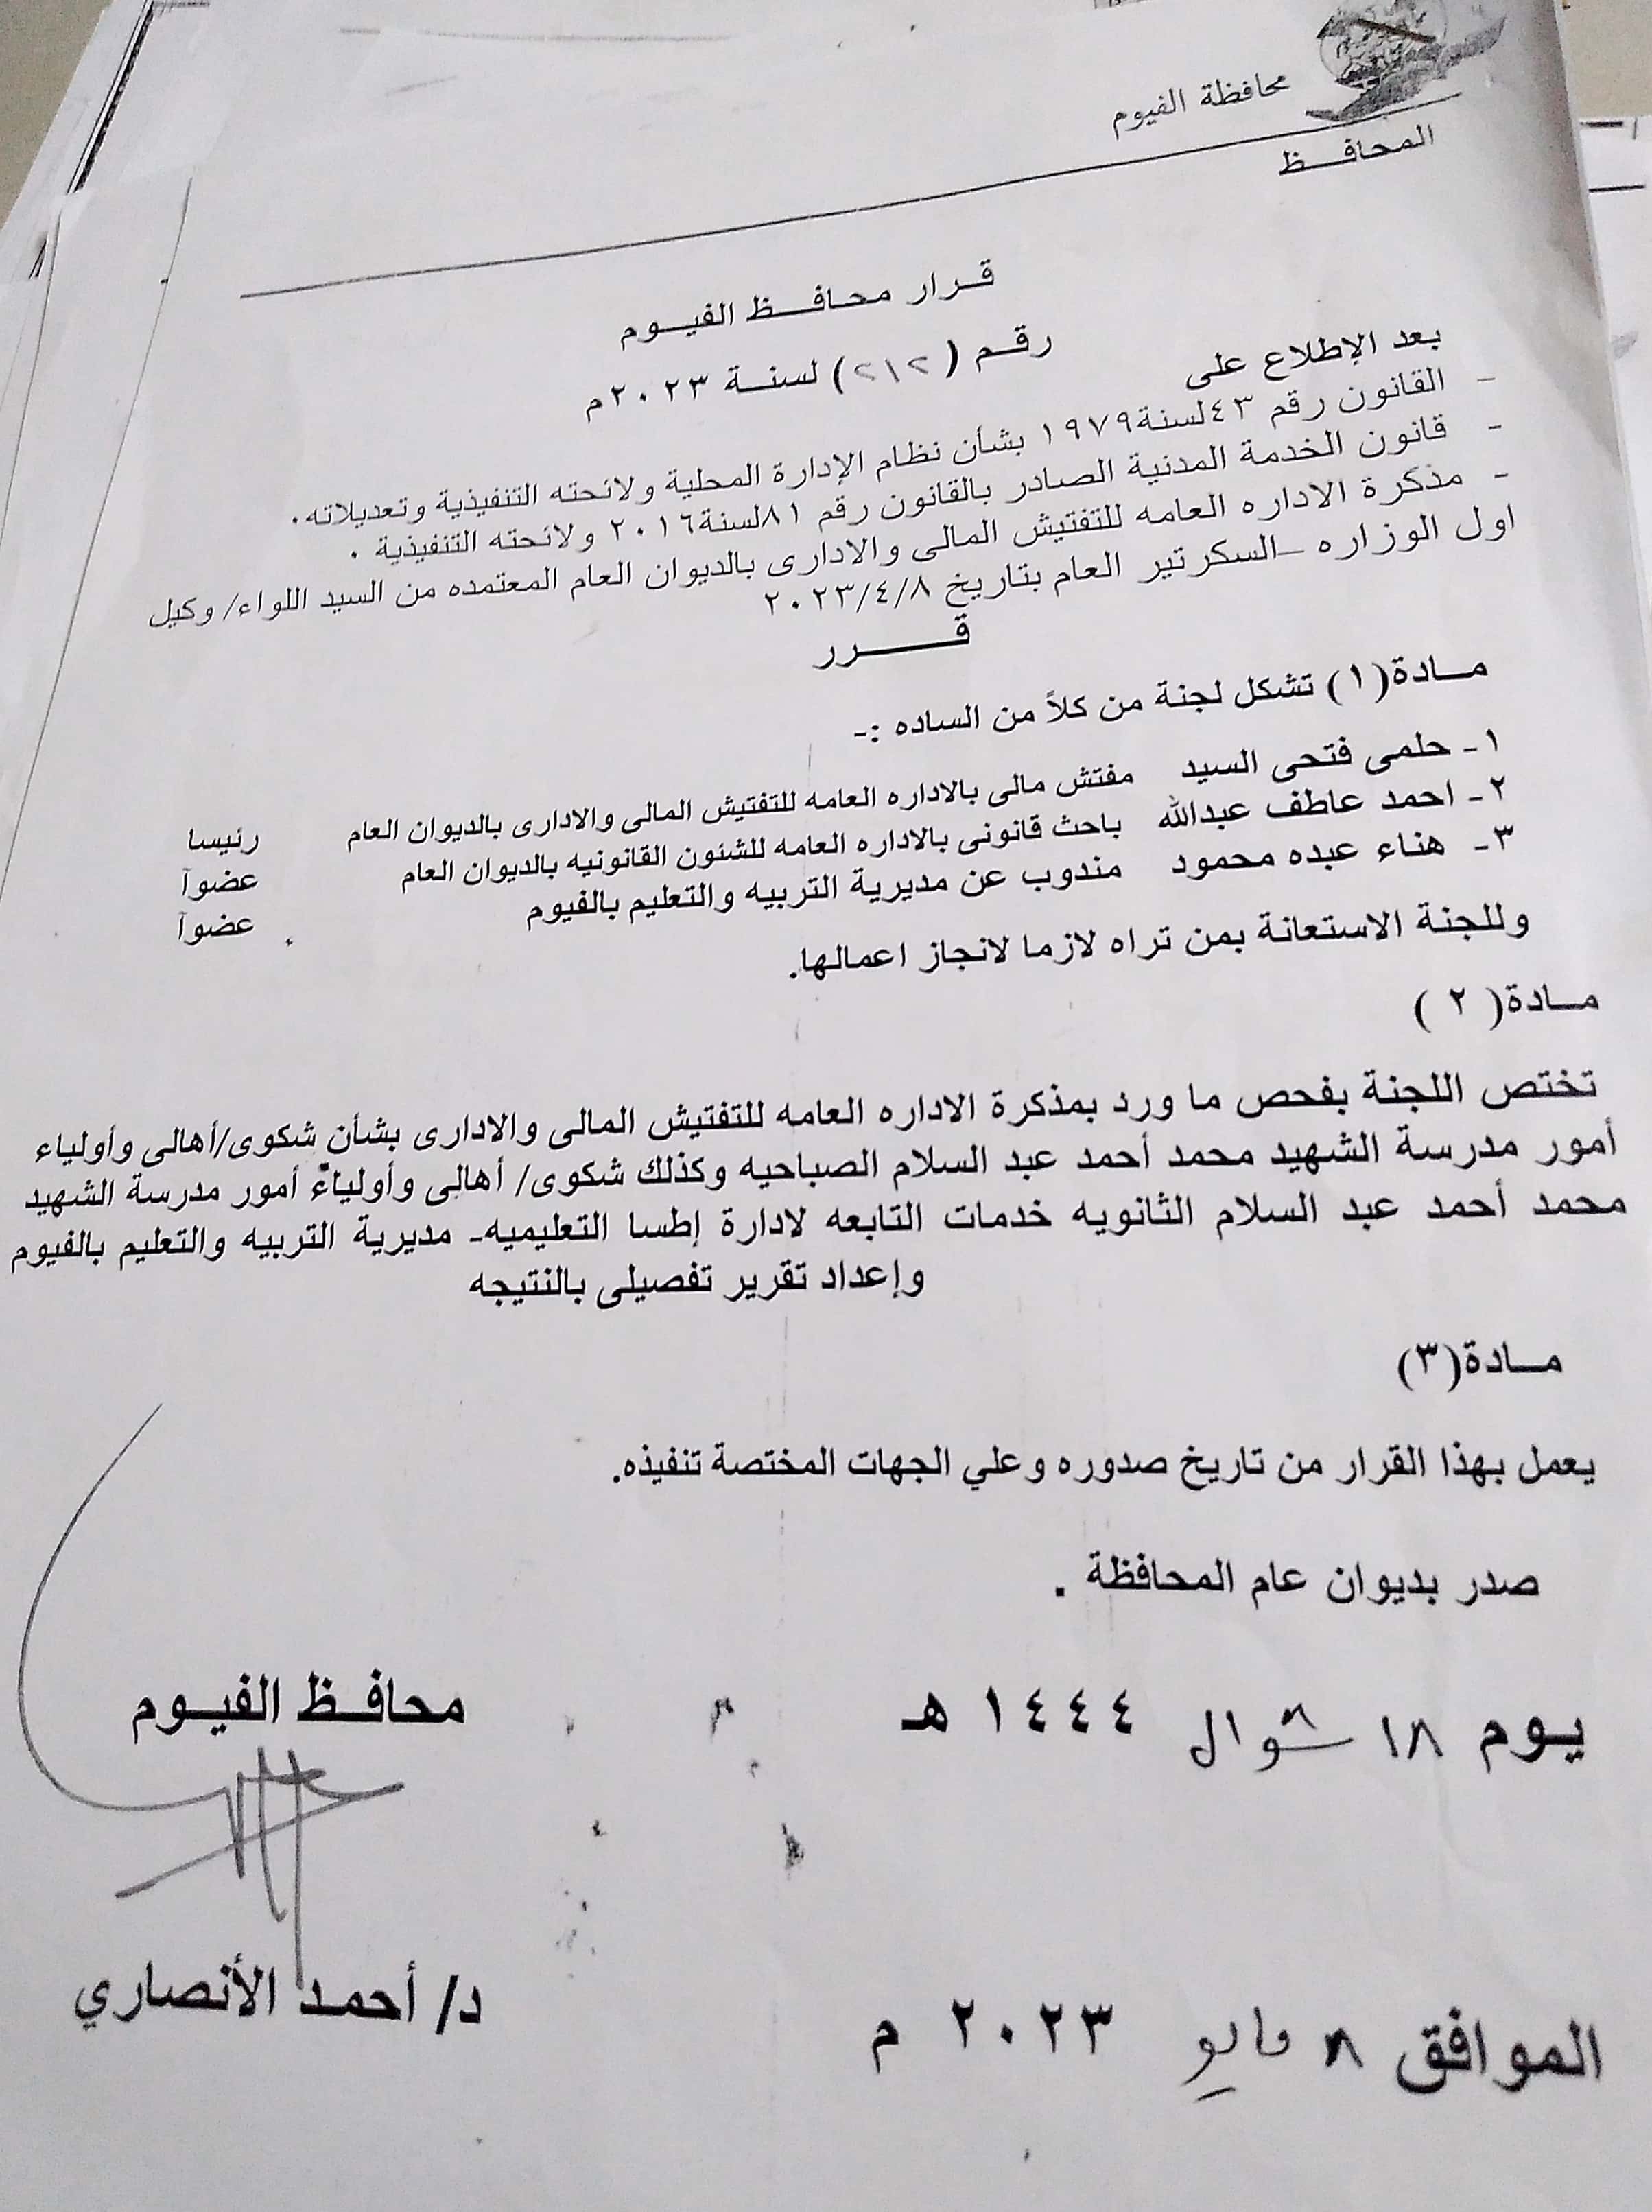 محافظة الفيوم
المحافـــظ
قـرار محافـــظ الفيـــوم
رقـم (٢١٢) لسنـة ٢٠٢٣م
بعد الإطلاع على
- القانون رقم ٤٣لسنة١٩٧٩ بشأن نظام الإدارة المحلية ولائحته التنفيذية وتعديلاته.
- قانون الخدمة المدنية الصادر بالقانون رقم ٨١لسنة٢٠١٦ ولائحته التنفيذية .
- مذكرة الاداره العامه للتفتيش المالى والادارى بالديوان العام المعتمده من السيد اللواء/ وكيل
اول الوزاره –السكرتير العام بتاريخ ٢٠٢٣/٤/٨
قـــــــرر
مــادة(١) تشكل لجنة من كلاً من الساده :-
١- حلمى فتحى السيد مفتش مالى بالاداره العامه للتفتيش المالى والادارى بالديوان العام رئيسا
٢- احمد عاطف عبدالله باحث قانونى بالاداره العامه للشئون القانونيه بالديوان العام عضوآ
٣- هناء عبده محمود مندوب عن مديرية التربيه والتعليم بالفيوم عضوآ
وللجنة الاستعانة بمن تراه لازما لانجاز اعمالها.
مــادة( ٢ )
تختص اللجنة بفحص ما ورد بمذكرة الاداره العامه للتفتيش المالى والادارى بشأن شكوى/أهالى وأولياء
أمور مدرسة الشهيد محمد أحمد عبد السلام الصباحيه وكذلك شكوى/ أهالى وأولياء أمور مدرسة الشهيد
محمد أحمد عبد السلام الثانويه خدمات التابعه لادارة إطسا التعليميه- مديرية التربيه والتعليم بالفيوم
وإعداد تقرير تفصيلى بالنتيجه
مــادة(٣)
يعمل بهذا القرار من تاريخ صدوره وعلي الجهات المختصة تنفيذه.
صدر بديوان عام المحافظة .
يـوم ١٨ شوال ١٤٤٤ هـ
محافـظ الفيـوم
الموافق ٨ مايو ٢٠٢٣ م
د/ أحمـد الأنصاري